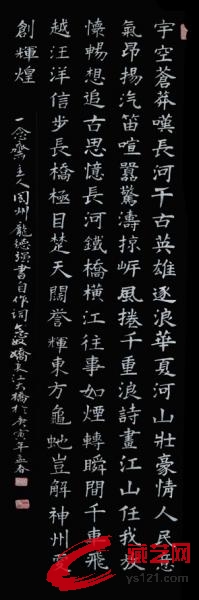 宇空蒼莽嘆長河千古英雄逐浪華夏河山壯豪情人民意
氣昂揚汽笛喧囂驚濤掠岸風捲千重浪詩畫江山任我族
懷暢想追古思憶長河鐵橋橫江往事如煙轉瞬間千車飛
越汪洋信步長橋極目楚天闊譽輝東方龜虵豈解神州意
創輝煌
一念齋主人國州龍德強書自作詞念奴嬌長江大橋於庚寅年孟春
藏艺网
ys121.com